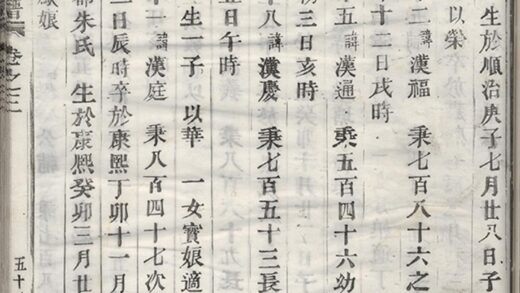 生於順治庚子七月廿八日子
以榮
二 諱漢福 秉七百八十六之
十二日戌時
五 諱漢通 秉五百四十六幼
初三日亥時
十八 諱漢慶 秉七百五十三長
五日午時
生一子 以華 一女寶娘適
十一 諱漢庭 秉八百四十七次
日辰時卒於康熙丁卯十一月
朱氏 生於康熙癸卯三月廿
娘
譜 卷之三 五十